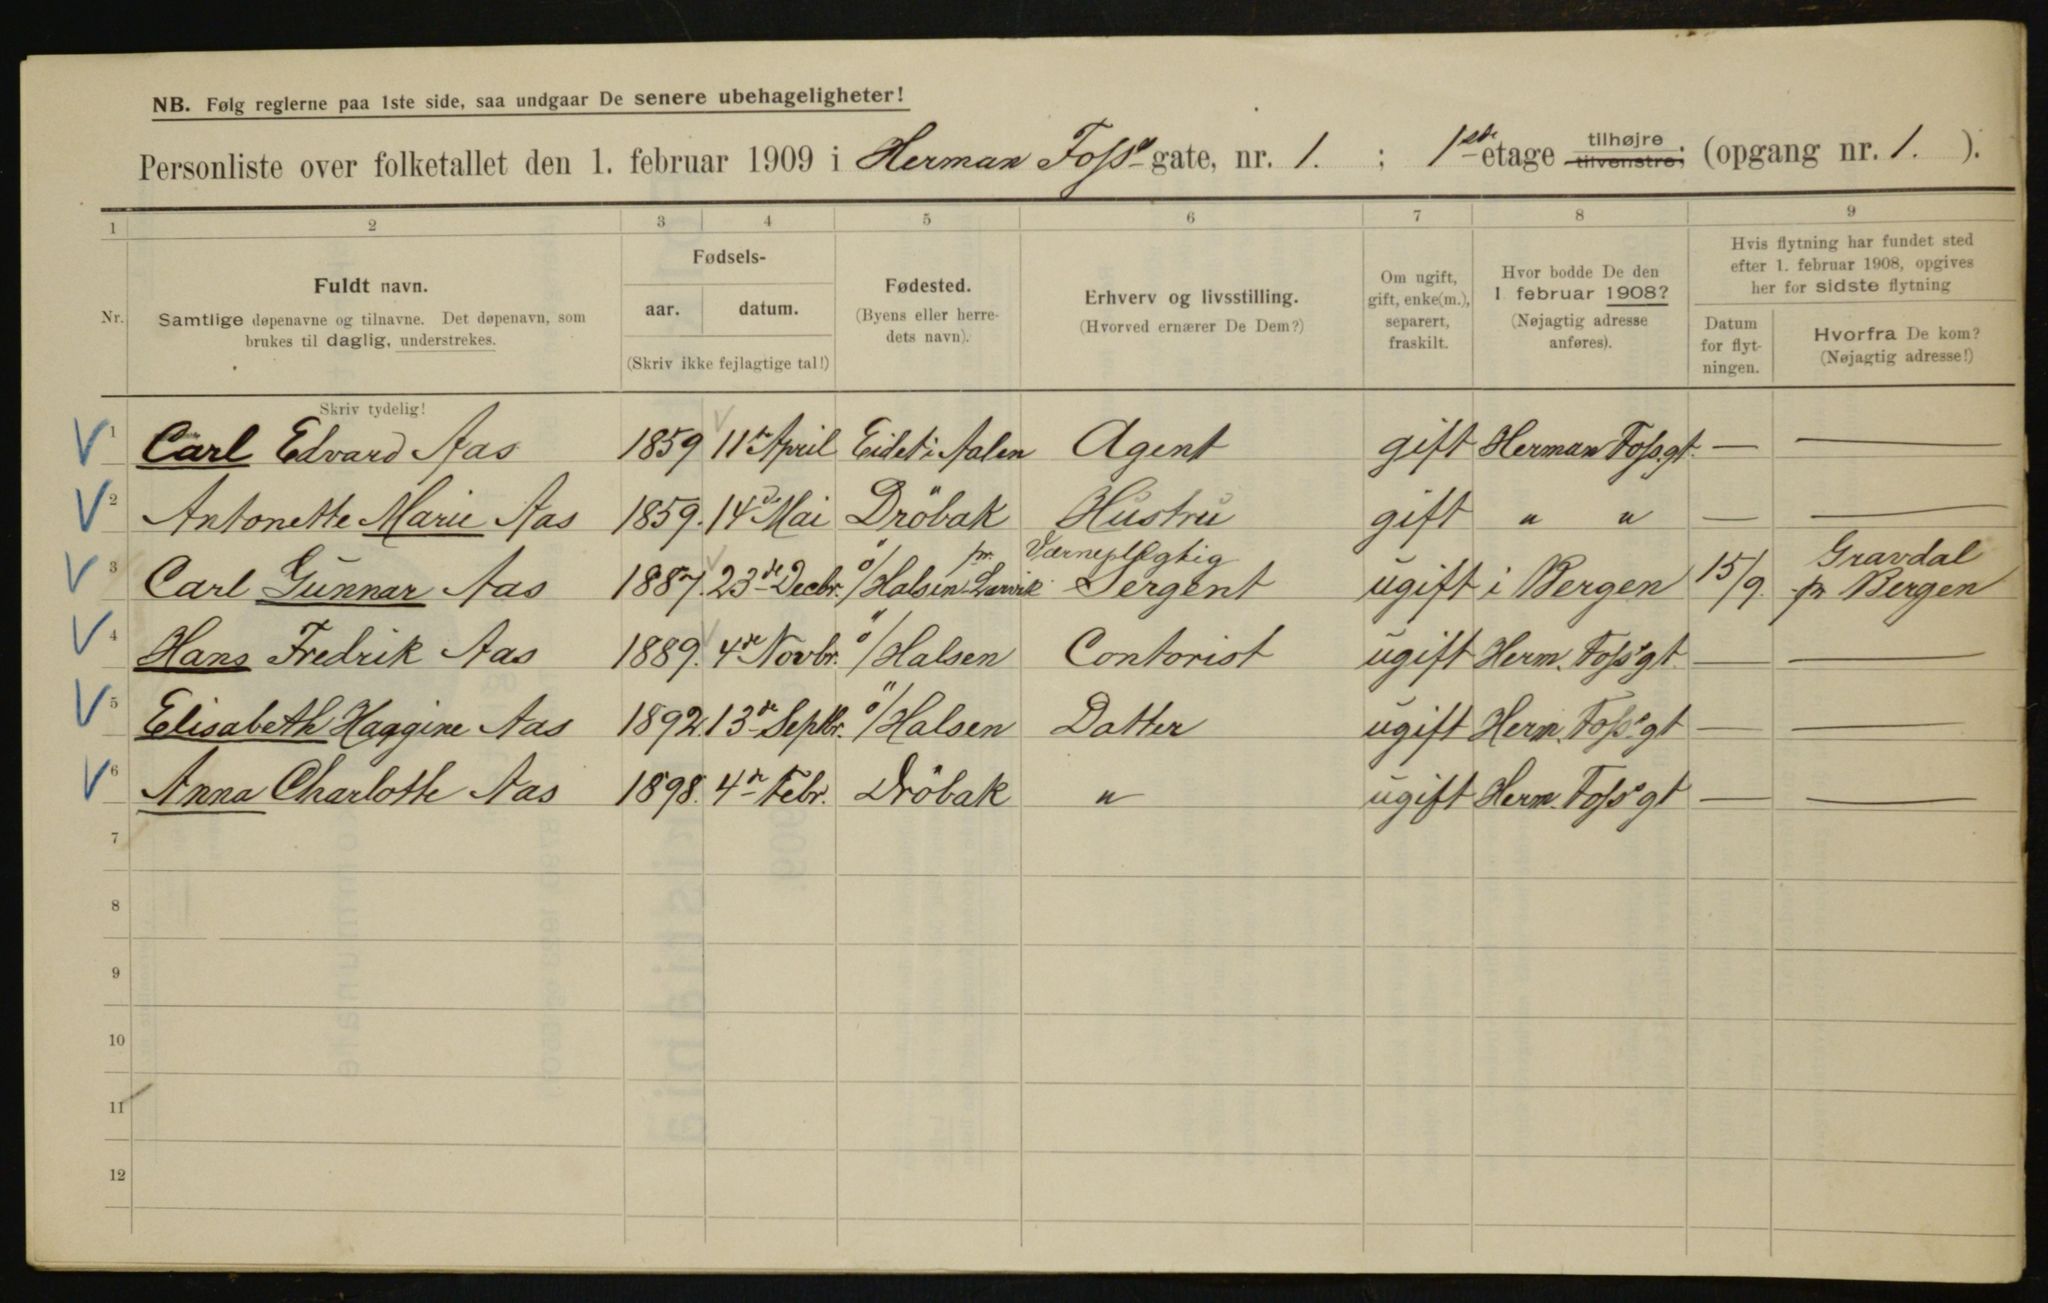 NB. Følg reglerne paa 1ste side, saa undgaar De senere ubehageligheter!
Personliste over folketallet den 1. februar 1909 i Herman Foss' gate, nr. 1. ; 1ste etage tilhøjre, tilvenstre; (opgang nr. 1. ).
1 2 3 4 5 6 7 8 9
Nr.
Fuldt navn.
Samtlige døpenavne og tilnavne. Det døpenavn, som
brukes til daglig, understrekes.
Fødsels-
aar. datum.
(Skriv ikke fejlagtige tal!)
Fødested.
(Byens eller herre-
dets navn).
Erhverv og livsstilling.
(Hvorved ernærer De Dem?)
Om ugift,
gift, enke(m.),
separert,
fraskilt.
Hvor bodde De den
1. februar 1908?
(Nøjagtig adresse
anføres).
Hvis flytning har fundet sted
efter 1. februar 1908, opgives
her for sidste flytning
Datum
for flyt-
ningen.
Hvorfra De kom?
(Nøjagtig adresse!)
Skriv tydelig!
1 Carl Edvard Aas 1859 11te April Eidet i Aalen Agent gift Herman Foss.gt. — —
2 Antonette Marie Aas 1859. 14de Mai Dröbak Hustru gift " " — —
3 Carl Gunnar Aas 1887. 23de Decbr. ö/Halsen pr. Larvik Værnepligtig Sergent ugift i Bergen 15/9. Gravdal pr Bergen
4 Hans Fredrik Aas 1889. 4de Novbr. ö/Halsen Contorist ugift Herm. Foss'gt — —
5 Elisabeth Haagine Aas 1892. 13de Septbr. ö/Halsen Datter ugift Herm. Foss'gt — —
6 Anna Charlotte Aas 1898. 4de Febr. Dröbak " ugift Herm. Foss'gt — —
7
8
9
10
11
12